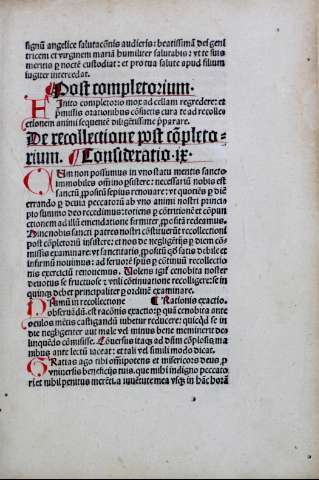 signũ angelice salutacõnis audieris: beatissimã dei geni
tricem et virginem mariã humiliter salutabis: vt te suis
meritis p̱ nocte custodiat: et pro tua salute apud filium
iugiter intercedat.
¶Post completorium.
FInito completorio mox ad cellam regredere: et
p̱missis orationibus cõsuetis cura te ad recolle
ctionem animi sequente diligẽtissime p̱parare.
De recollectione post cõpleto-
rium. ¶Consideratio.ix.
CUm non possumus in vno statu mentis sancto
immobiles om̃ino p̱sistere: necessariũ nobis est
sanctũ p̱positũ sepius renouare: vt quotiẽs p̱ diẽ
errando p̱ deuia peccatorũ ab vno animi nostri princi
pio summo deo recedimus: totiens p̱ cõtritionẽ et cõpun
ctionem ad illũ emendatione firmiter p̱posita redeamus.
Hinc nobis sancti patres nostri cõstituerũt recollectionẽ
post cõpletoriũ insistere: et nos de negligẽtijs p̱ diem cõ
missis examinare: vt sanctitatis p̱positũ qđ satis debile et
infirmũ nouimus: ad feruorẽ spũs p̱ continuũ recollectio
nis exerciciũ renouemus. Volens igit̃ cenobita noster
deuotus se fructuose z vtili cõtinuatione recolligere: se in
quinqȝ debet principaliter p̱ ordinẽ examinare.
PRimũ in recollectione ¶Rationis exactio.
obseruãdũ. est racõnis exactio: p̱ quã cenobita ante
oculos mẽtis castigandã iubetur reducere: quicq̃d se in
die negligenter aut male vel minus bene meminerit de
linquẽdo cõmisisse. Cõuersus itaqȝ ad dñm cõplosis ma
nibus ante lectũ iaceat: et tali vel simili modo dicat.
GRatias ago tibi om̃ipotens et misericors deus p̱
vniuersis beneficijs tuis. que mihi indigno peccato
ri et nihil penitus merẽti. a iuuẽtute mea vsqȝ in hãc horã